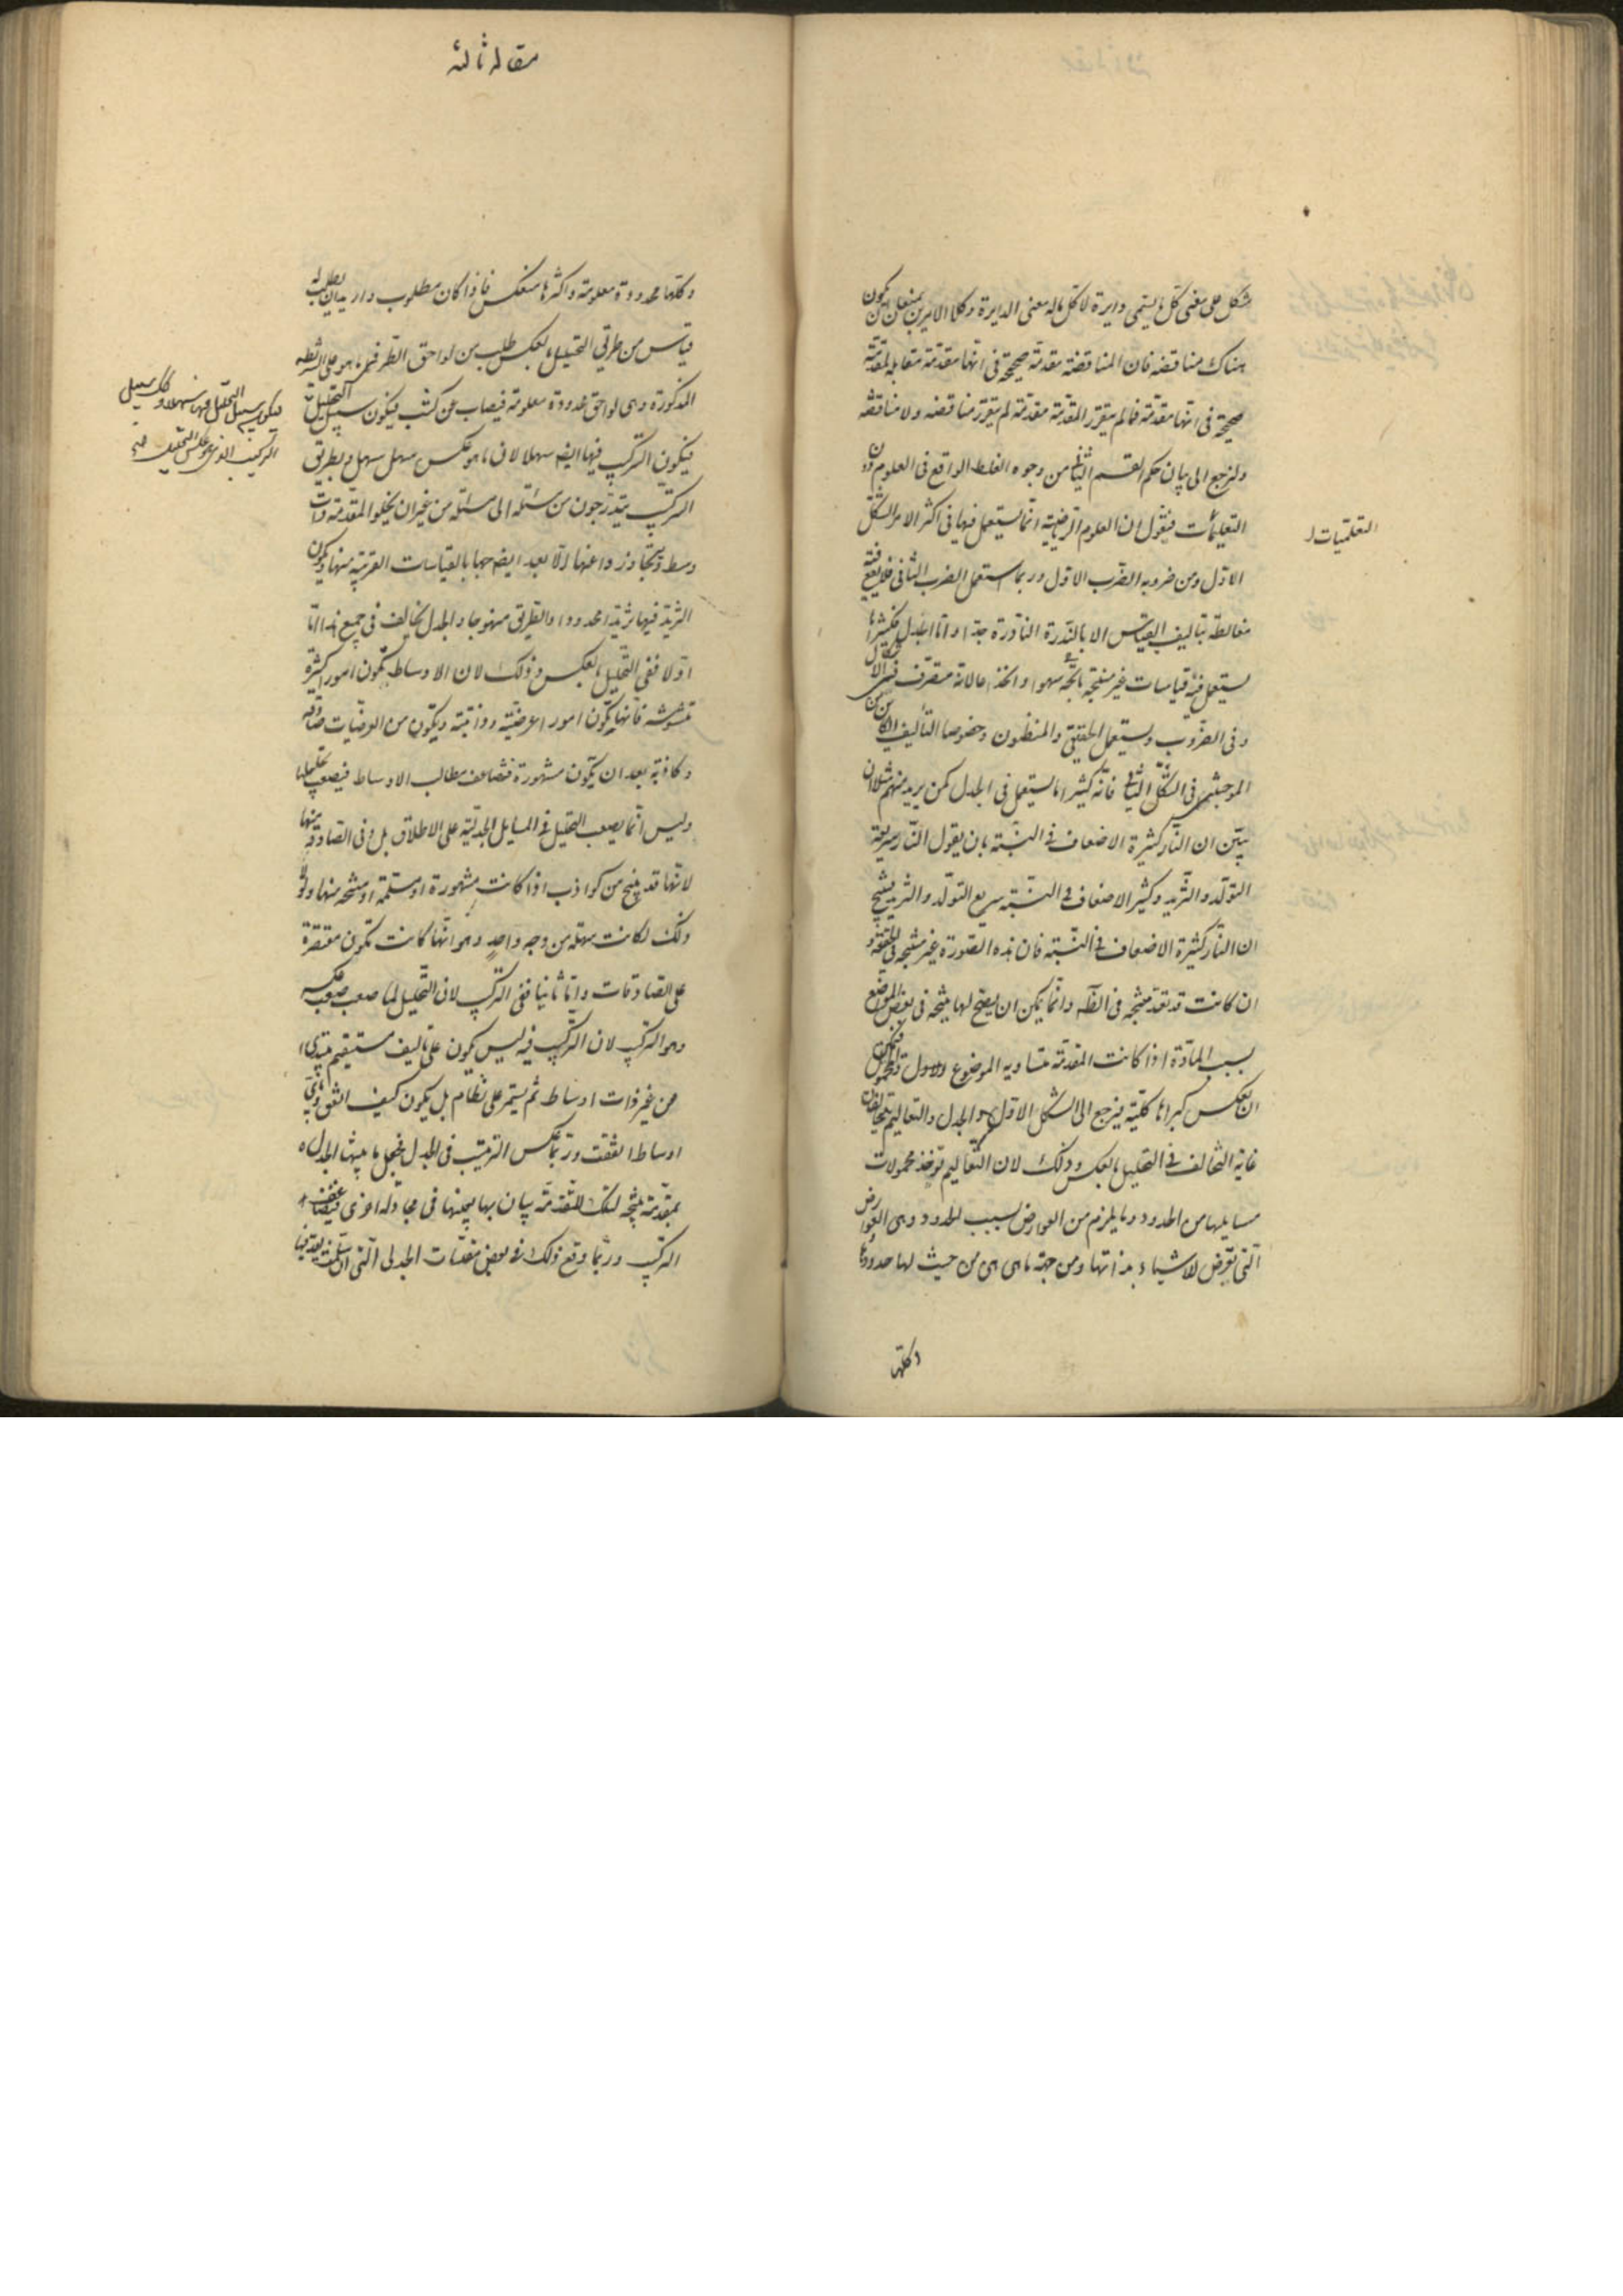 شكل على معنى كل ما يسمى دايرة لا كل ما له معنى الدايرة وكلا الامرين يمنعان ان يكون
هناك مناقضه فان المناقضة مقدمة صحيحة فى انها مقدمة مقابله لمقدمة
صحيحة فى انها مقدمة فما لم يتقرر المقدمة مقدمة لم يتقرر مناقضه ولا مناقضه
ولنرجع الى بيان حكم القسم الثانى من وجوه الغلط الواقع فى العلوم دون
التعليمات فنقول ان العلوم الرياضية انما يستعمل فيها فى اكثر الامر الشكل
التعلميات
الاول ومن ضروبه الضرب الاول وربما استعمل الضرب الثانى فلا يقع فيه
مغالطة بتاليف القياس الا بالندرة النادرة جدا واما الجدل فكثيرا ما
يستعمل فيه قياسات غير منتجة سهوا والخذ عالانه متصرف فى الاشكال
وفى الضروب ويستعمل الحقيقى والمظنون وخصوصا التأليف الكائن من
الموجبتين فى الشكل الثانى فانه كثيرا ما يستعمل فى الجدل كمن يريد منهم مثلا ان
يبين ان النار كثيرة الاضعاف فى النسبة بان يقول النار سريعة
التولد والتزيد وكثير الاضعاف فى النسبة سريع التولد والتزيد ينتج
ان النار كثيرة الاضعاف فى النسبة فان هذه الصورة غير منتجة فى الحقيقة و
ان كانت قد تعد منتجة فى الظاهر وانما يمكن ان يصح لها نتيجة فى بعض المواضع
بسبب المادة اذا كانت المقدمة متساويه الموضوع والمحمول فيمكن
ان يعكس كبراها كلية فيرجع الى الشكل الاول والجدل والتعاليم يتخالفان
غاية التخالف فى التحليل بالعكس وذلك لان التعاليم تؤخذ محمولات
مسايلها من الحدود وما يلزم من العوارض بسبب الحدود وهى العوارض
التى تعرض للاشياء بذاتها ومن جهة ما هى هى من حيث لها حدودها
وكلها
مقاله ثالثه
وكلها محدودة معلومة واكثرها منعكس فاذا كان مطلوب واريد ان يطلب له
قياس من طريق التحليل بالعكس طلب من لواحق الطرفين ما هو على الشريطه
المذكورة وهى لواحق محدودة معلومة فيصاب عن كثب فيكون سبيل التحليل
فيكون سبيل التحليل فيها سهلا وكل سبيل
التركيب الذى هو عكس التحليل
فيكون التركيب فيها ايضا سهلا لان ما هو عكس سهل سهل وبطريق
التركيب يتدرجون من مسئلة الى مسئلة من غير ان يخلو المقدمة ذات
وسط ويتجاوزوا عنها الا بعد ايضاحها بالقياسات القريبة منها ويكون
التزيد فيها تزيدا محدودا والطريق منهوجا والجدل يخالف فى جميع هذا اما
اولا ففى التحليل بالعكس وذلك لان الاوساط تكون امورا كثيرة
متشوشه فانها يكون امورا عرضية وذاتية ويكون من العرضيات صادقه
وكاذبة بعد ان يكون مشهورة فتضاعف مطالب الاوساط فيصعب تحليلها
وليس انما يصعب التحليل فى المسايل الجدلية على الاطلاق بل وفى الصادقة منها
لانها قد ينتج من كواذب اذا كانت مشهورة او متسلمة او منتجه منها ولولا
ذلك لكانت سهلة من وجه واحد وهو انها كانت تكون مقتصرة
على الصادقات واما ثانيا ففى التركيب لان التحليل لما صعب صعب عكسه
وهو التركيب لان التركيب فيه ليس يكون على تاليف مستقيم يبتدى
من غير ذات اوساط ثم يستمر على نظام بل يكون كيف اتفق وباى
اوساط اتفقت وربما عكس الترتيب فى الجدل فجعل ما ينتجه الجدل
بمقدمة نتيجة لتلك المقدمة بيان بها بعينها فى مجادله اخرى فيتضاعف
التركيب وربما وقع ذلك فى بعض مقدمات الجدلى التى